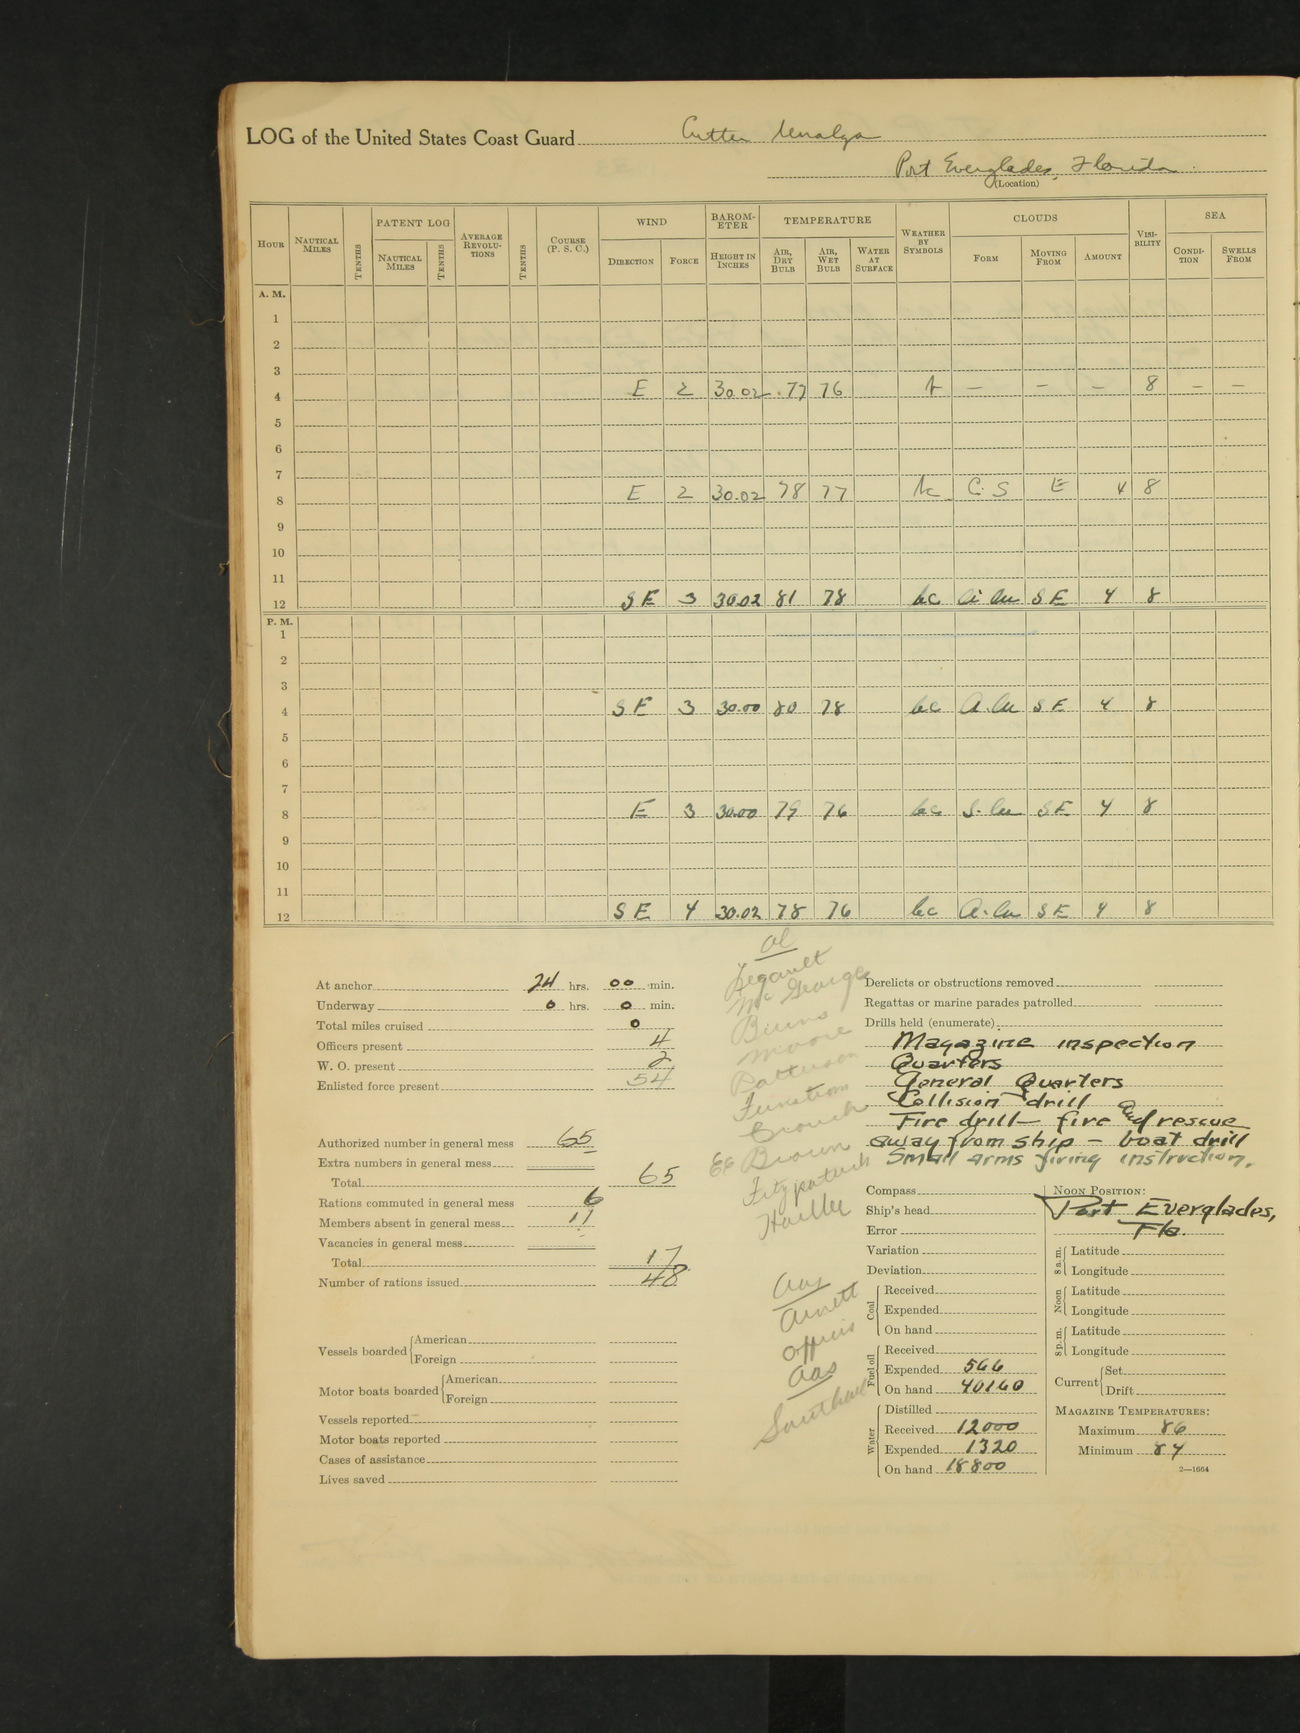 LOG of the United States Coast Guard Cutter Unalga
Port Everglades, Florida
(Location)
HOUR NAUTICAL MILES TENTHS PATENT LOG NAUTICAL MILES TENTHS AVERAGE REVOLUTIONS TENTHS COURSE (P. S. C.) WIND DIRECTION FORCE BAROMETER HEIGHT IN INCHES TEMPERATURE AIR, DRY BULB AIR, WET BULB WATER AT SURFACE WEATHER BY SYMBOLS CLOUDS FORM MOVING FROM AMOUNT VISIBILITY SEA CONDITION SWELLS FROM
A. M.
1
2
3
4 E 2 30.02 77 76 — — — 8 — —
5
6
7
8 E 2 30.02 78 77 C. S E 4 8
9
10
11
12 SE 3 30.02 81 78 bc SE 4 8
P. M.
1
2
3
4 SE 3 30.00 80 78 bc A. Cu SE 4 8
5
6
7
8 E 3 30.00 79 76 bc S. Cu SE 4 8
9
10
11
12 SE 4 30.02 78 76 bc A. Cu SE 4 8
At anchor 24 hrs. 00 min.
Underway 0 hrs. 0 min.
Total miles cruised 0
Officers present 4
W. O. present 2
Enlisted force present 54
Authorized number in general mess 65
Extra numbers in general mess
Total 65
Rations commuted in general mess 6
Members absent in general mess 11
Vacancies in general mess
Total 17
Number of rations issued 48
Vessels boarded American
Foreign
Motor boats boarded American
Foreign
Vessels reported
Motor boats reported
Cases of assistance
Lives saved
al
Legault
McGeorge
Burns
Moore
Patterson
Crouch
Brown
Fitzpatrick
Arnett
Officers
Derelicts or obstructions removed
Regattas or marine parades patrolled
Drills held (enumerate)
Magazine inspection
Quarters
General Quarters
Collision drill
Fire drill — fire and rescue
away from ship — boat drill
Small arms firing instruction.
Compass
Ship's head
Error
Variation
Deviation
Coal Received
Expended
On hand
Fuel oil Received
Expended 566
On hand 40160
Water Distilled
Received 12000
Expended 1320
On hand 18800
NOON POSITION:
Port Everglades,
Fla.
8 a. m. Latitude
Longitude
Noon Latitude
Longitude
8 p. m. Latitude
Longitude
Current Set
Drift
MAGAZINE TEMPERATURES:
Maximum 86
Minimum 84
2—1664